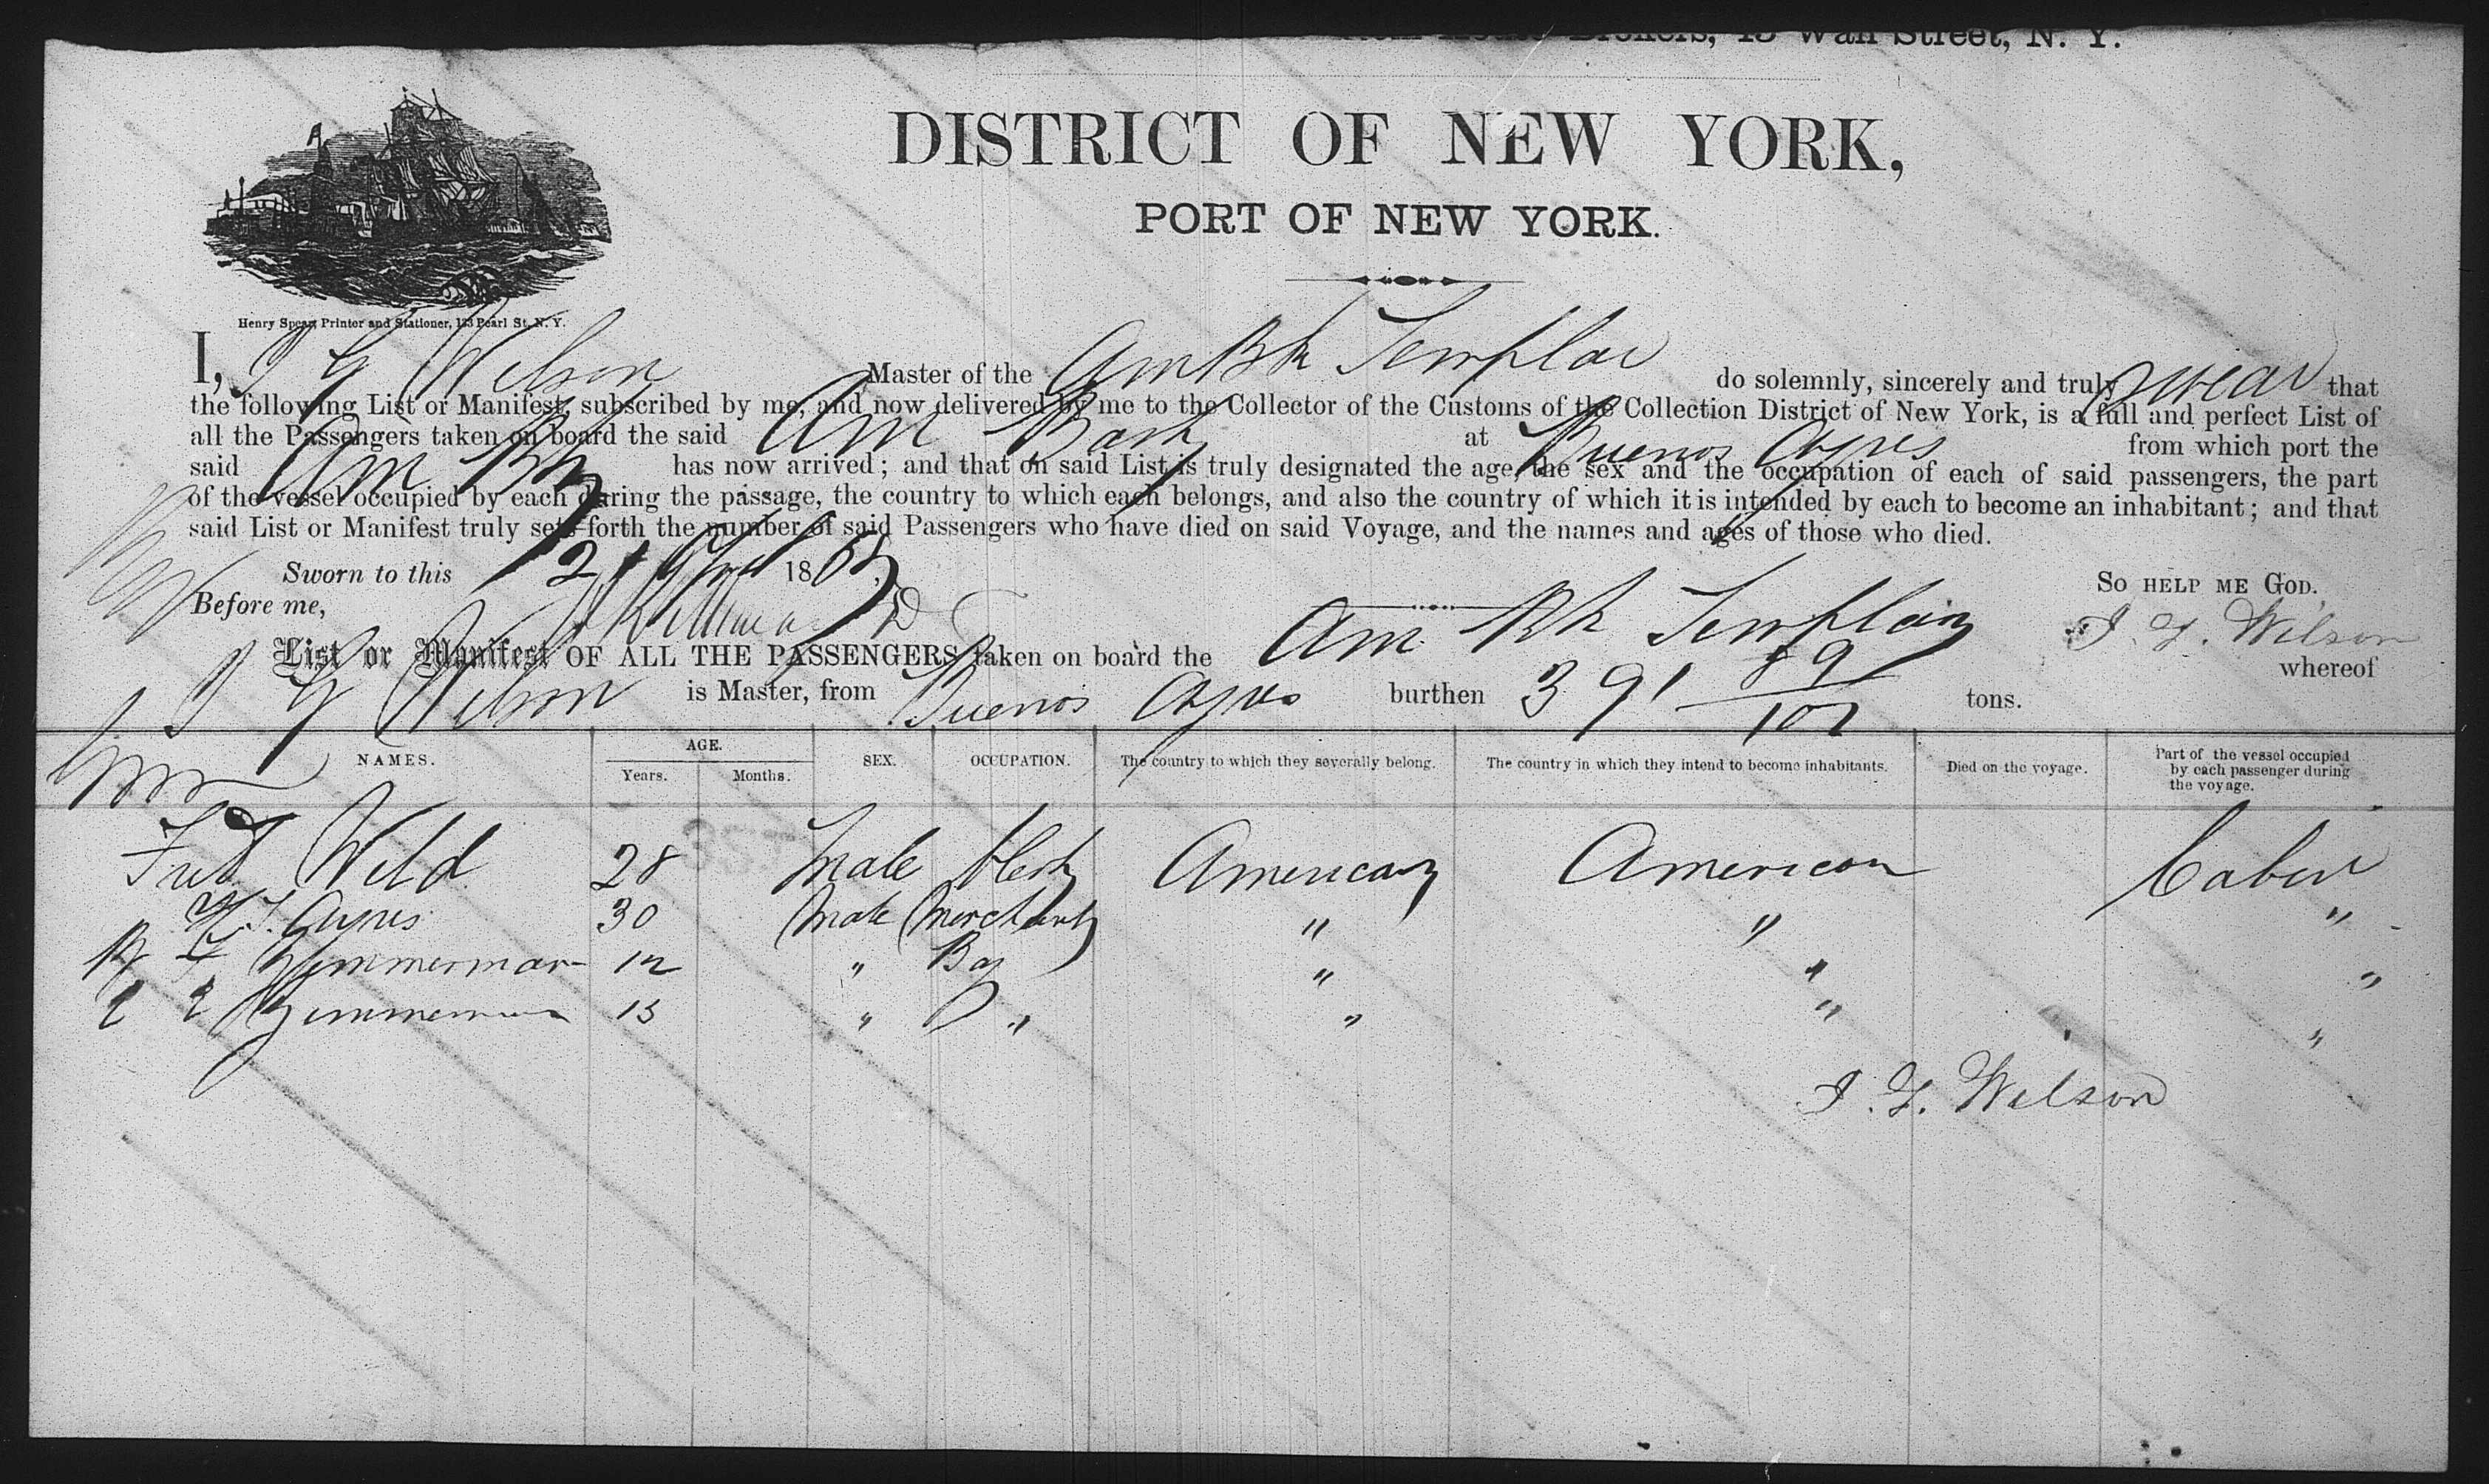 Brokers, 18 Wall Street, N. Y.
DISTRICT OF NEW YORK,
PORT OF NEW YORK.
Henry Spear, Printer and Stationer, 133 Pearl St. N. Y.
I, Wilson Master of the Am Bk Templar do solemnly, sincerely and truly swear that
the following List or Manifest, subscribed by me, and now delivered by me to the Collector of the Customs of the Collection District of New York, is a full and perfect List of
all the Passengers taken on board the said Am Bark at Buenos Ayres from which port the
said Am Bk has now arrived; and that on said List is truly designated the age, the sex and the occupation of each of said passengers, the part
of the vessel occupied by each during the passage, the country to which each belongs, and also the country of which it is intended by each to become an inhabitant; and that
said List or Manifest truly sets forth the number of said Passengers who have died on said Voyage, and the names and ages of those who died.
Sworn to this 21 186
SO HELP ME GOD.
Before me,
Wilson
List or Manifest OF ALL THE PASSENGERS taken on board the Am Bk Templar whereof
Wilson is Master, from Buenos Ayres burthen 391 tons.
NAMES. AGE. Years. Months. SEX. OCCUPATION. The country to which they severally belong. The country in which they intend to become inhabitants. Died on the voyage. Part of the vessel occupied by each passenger during the voyage.
Fred Weld 28 Male Clerk American American Cabin
Ayres 30 Male Merchant " " "
Zimmerman 12 " Boy " " "
Zimmerman 13 " " " " "
Wilson